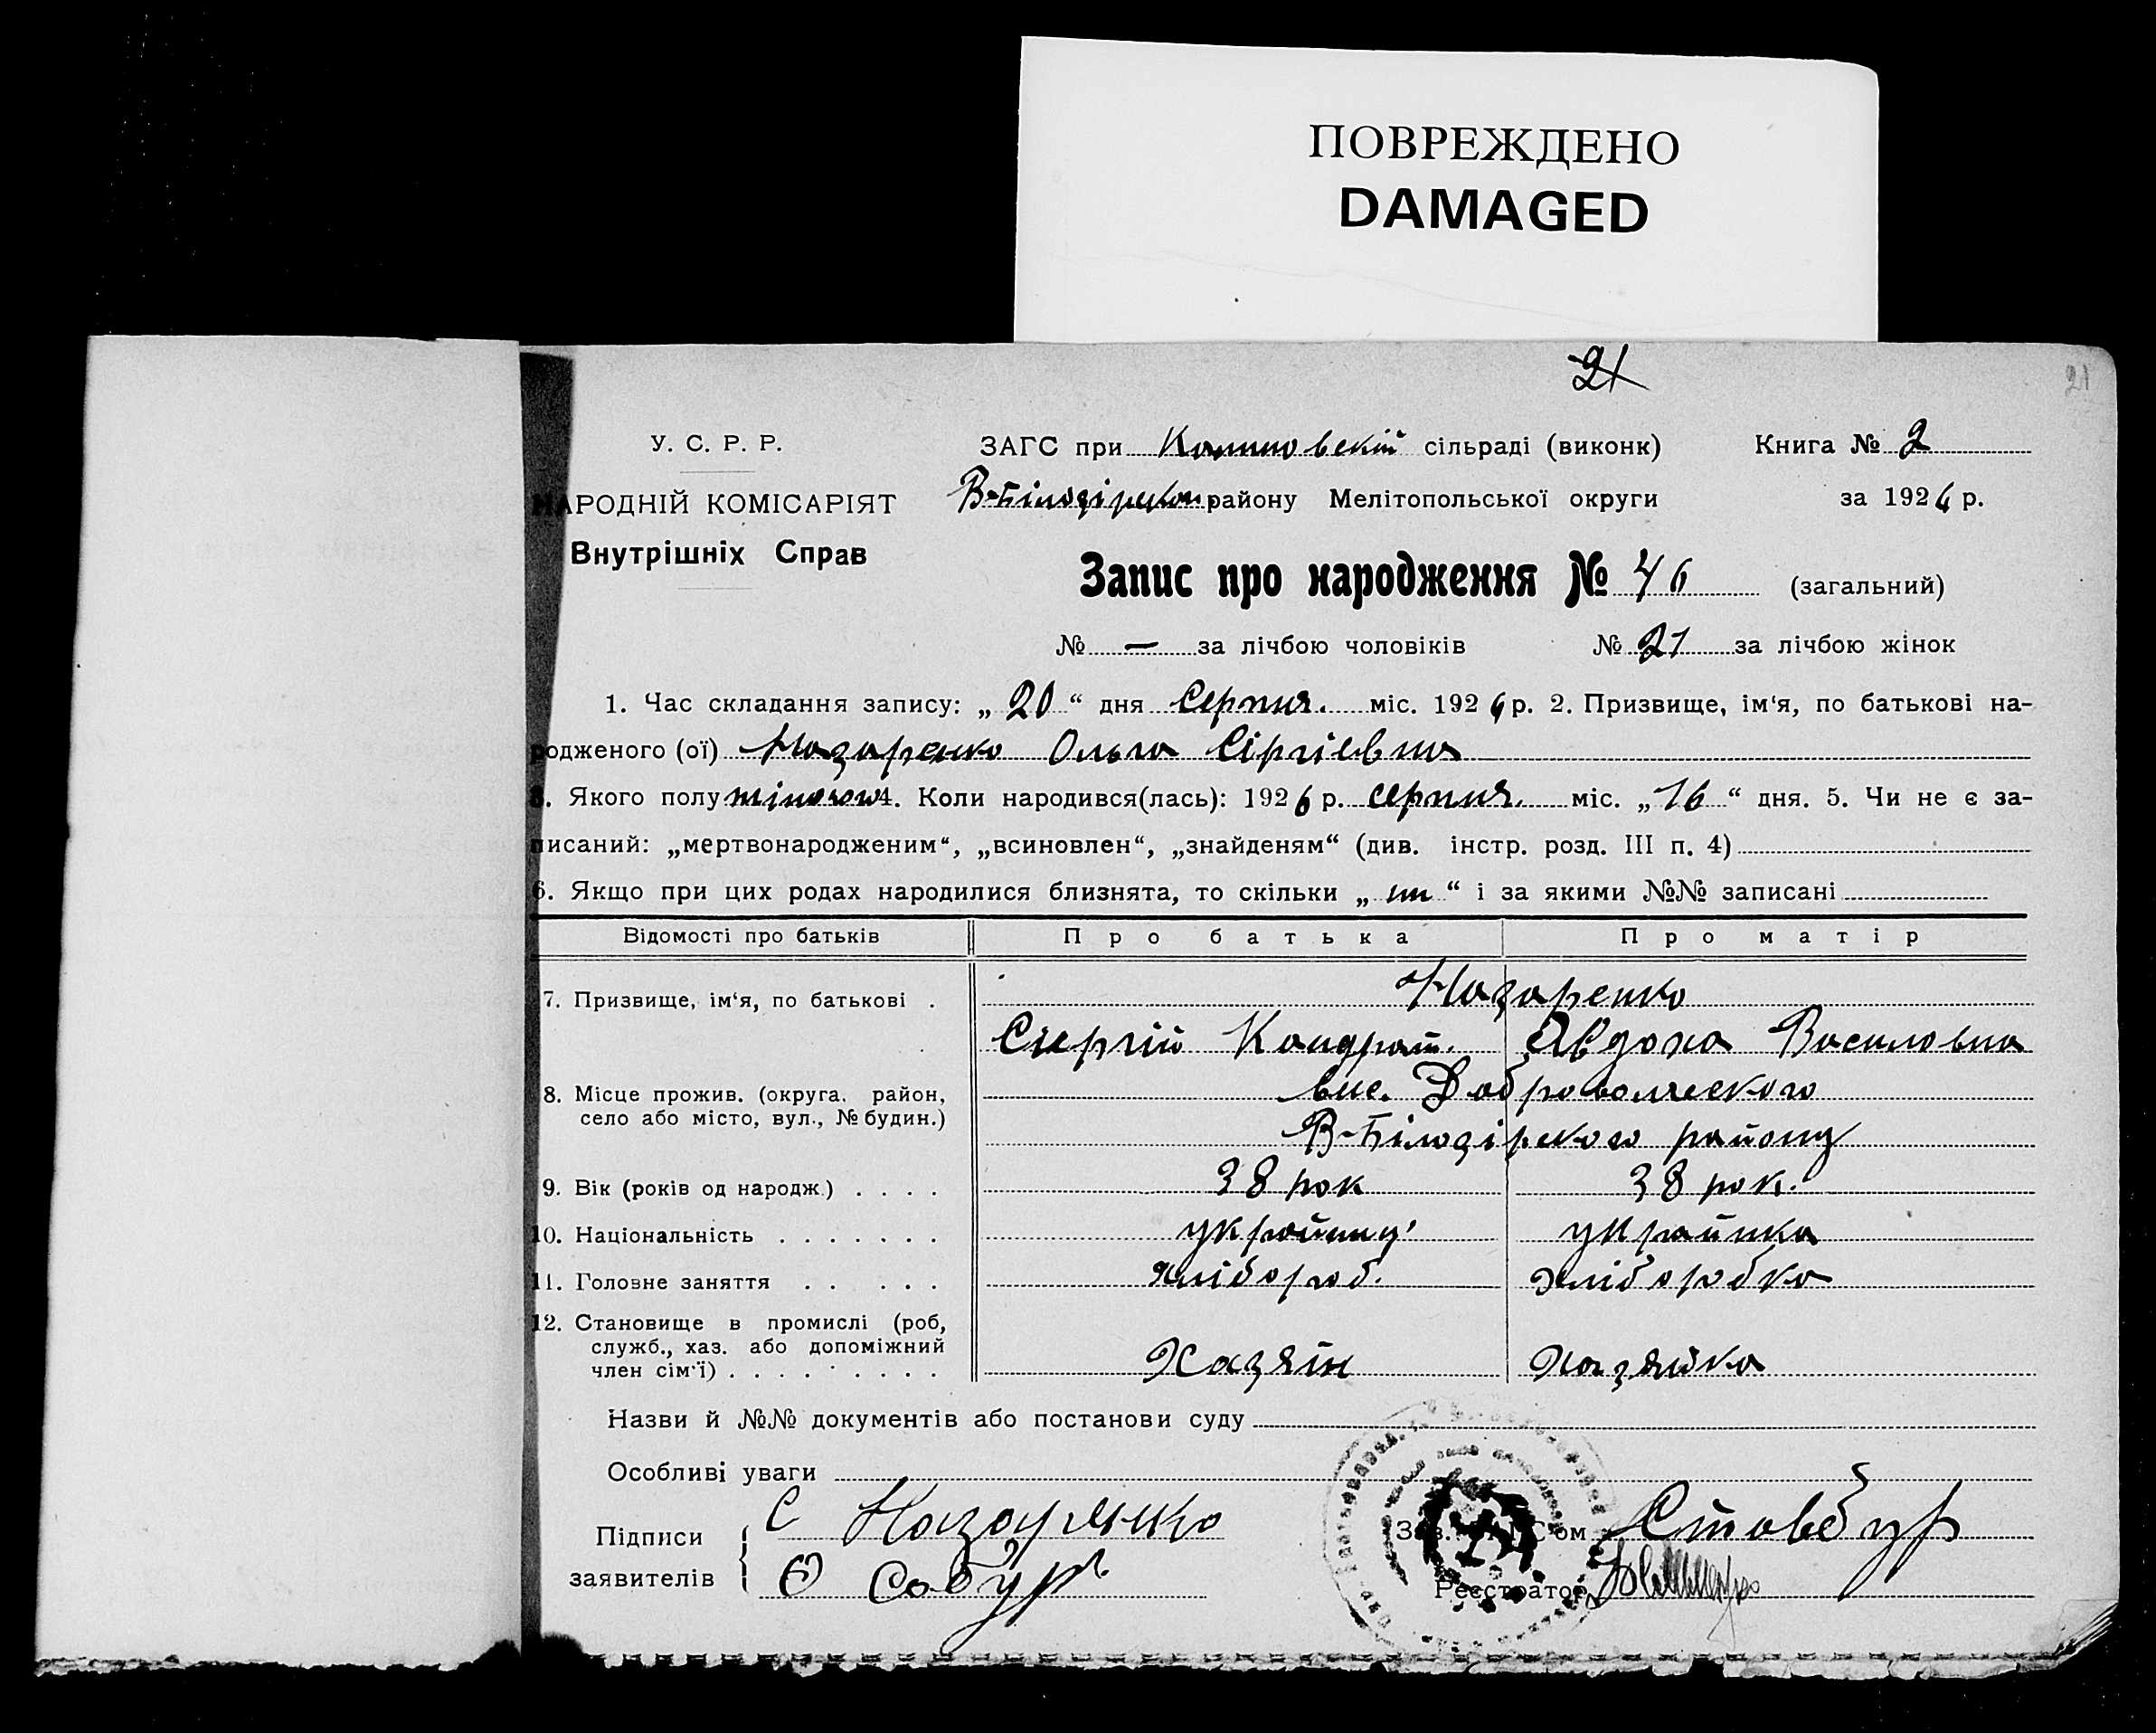 ПОВРЕЖДЕНО
DAMAGED
21
21
У. С. Р. Р.
НАРОДНІЙ КОМІСАРІЯТ
Внутрішніх Справ
ЗАГС при сільраді (виконк) Книга № 2
В-Білозірськ. району Мелітопольської округи за 1926 р.
Запис про народження № 46 (загальний)
№ — за лічбою чоловіків № 21 за лічбою жінок
1. Час складання запису: „ 20 “ дня Серпня. міс. 1926 р. 2. Призвище, ім‘я, по батькові на-
родженого (ої) Назаренко Ольга Сіргіевна
3. Якого полу жіночого 4. Коли народився(лась): 1926 р. серпня. міс. „ 16 “ дня. 5. Чи не є за-
писаний: „мертвонародженим“, „всиновлен“, „знайденям“ (див. інстр. розд. III п. 4)
6. Якщо при цих родах народилися близнята, то скільки „ ні “ і за якими №№ записані
Відомості про батьків Про батька Про матір
7. Призвище, ім‘я, по батькові . Назаренко
Сиргій Кондрат. Явдоха Василовна
8. Місце прожив. (округа, район, село або місто, вул., № будин.) вис. Добровольського
В-Білозірского району
9. Вік (років од народж.) . . . . 38 рок 38 рок.
10. Національність . . . . . . . україниц' українка
11. Головне заняття . . . . . хлібороб. хліборобка
12. Становище в промислі (роб,
служб., хаз. або допоміжний
член сім‘ї) . . . . . . . . . Хазяїн Хазяйка
Назви й №№ документів або постанови суду
Особливі уваги
Підписи С Назаренко Зав. ЗАГС‘ом Стовбур
заявителів Реєстратор